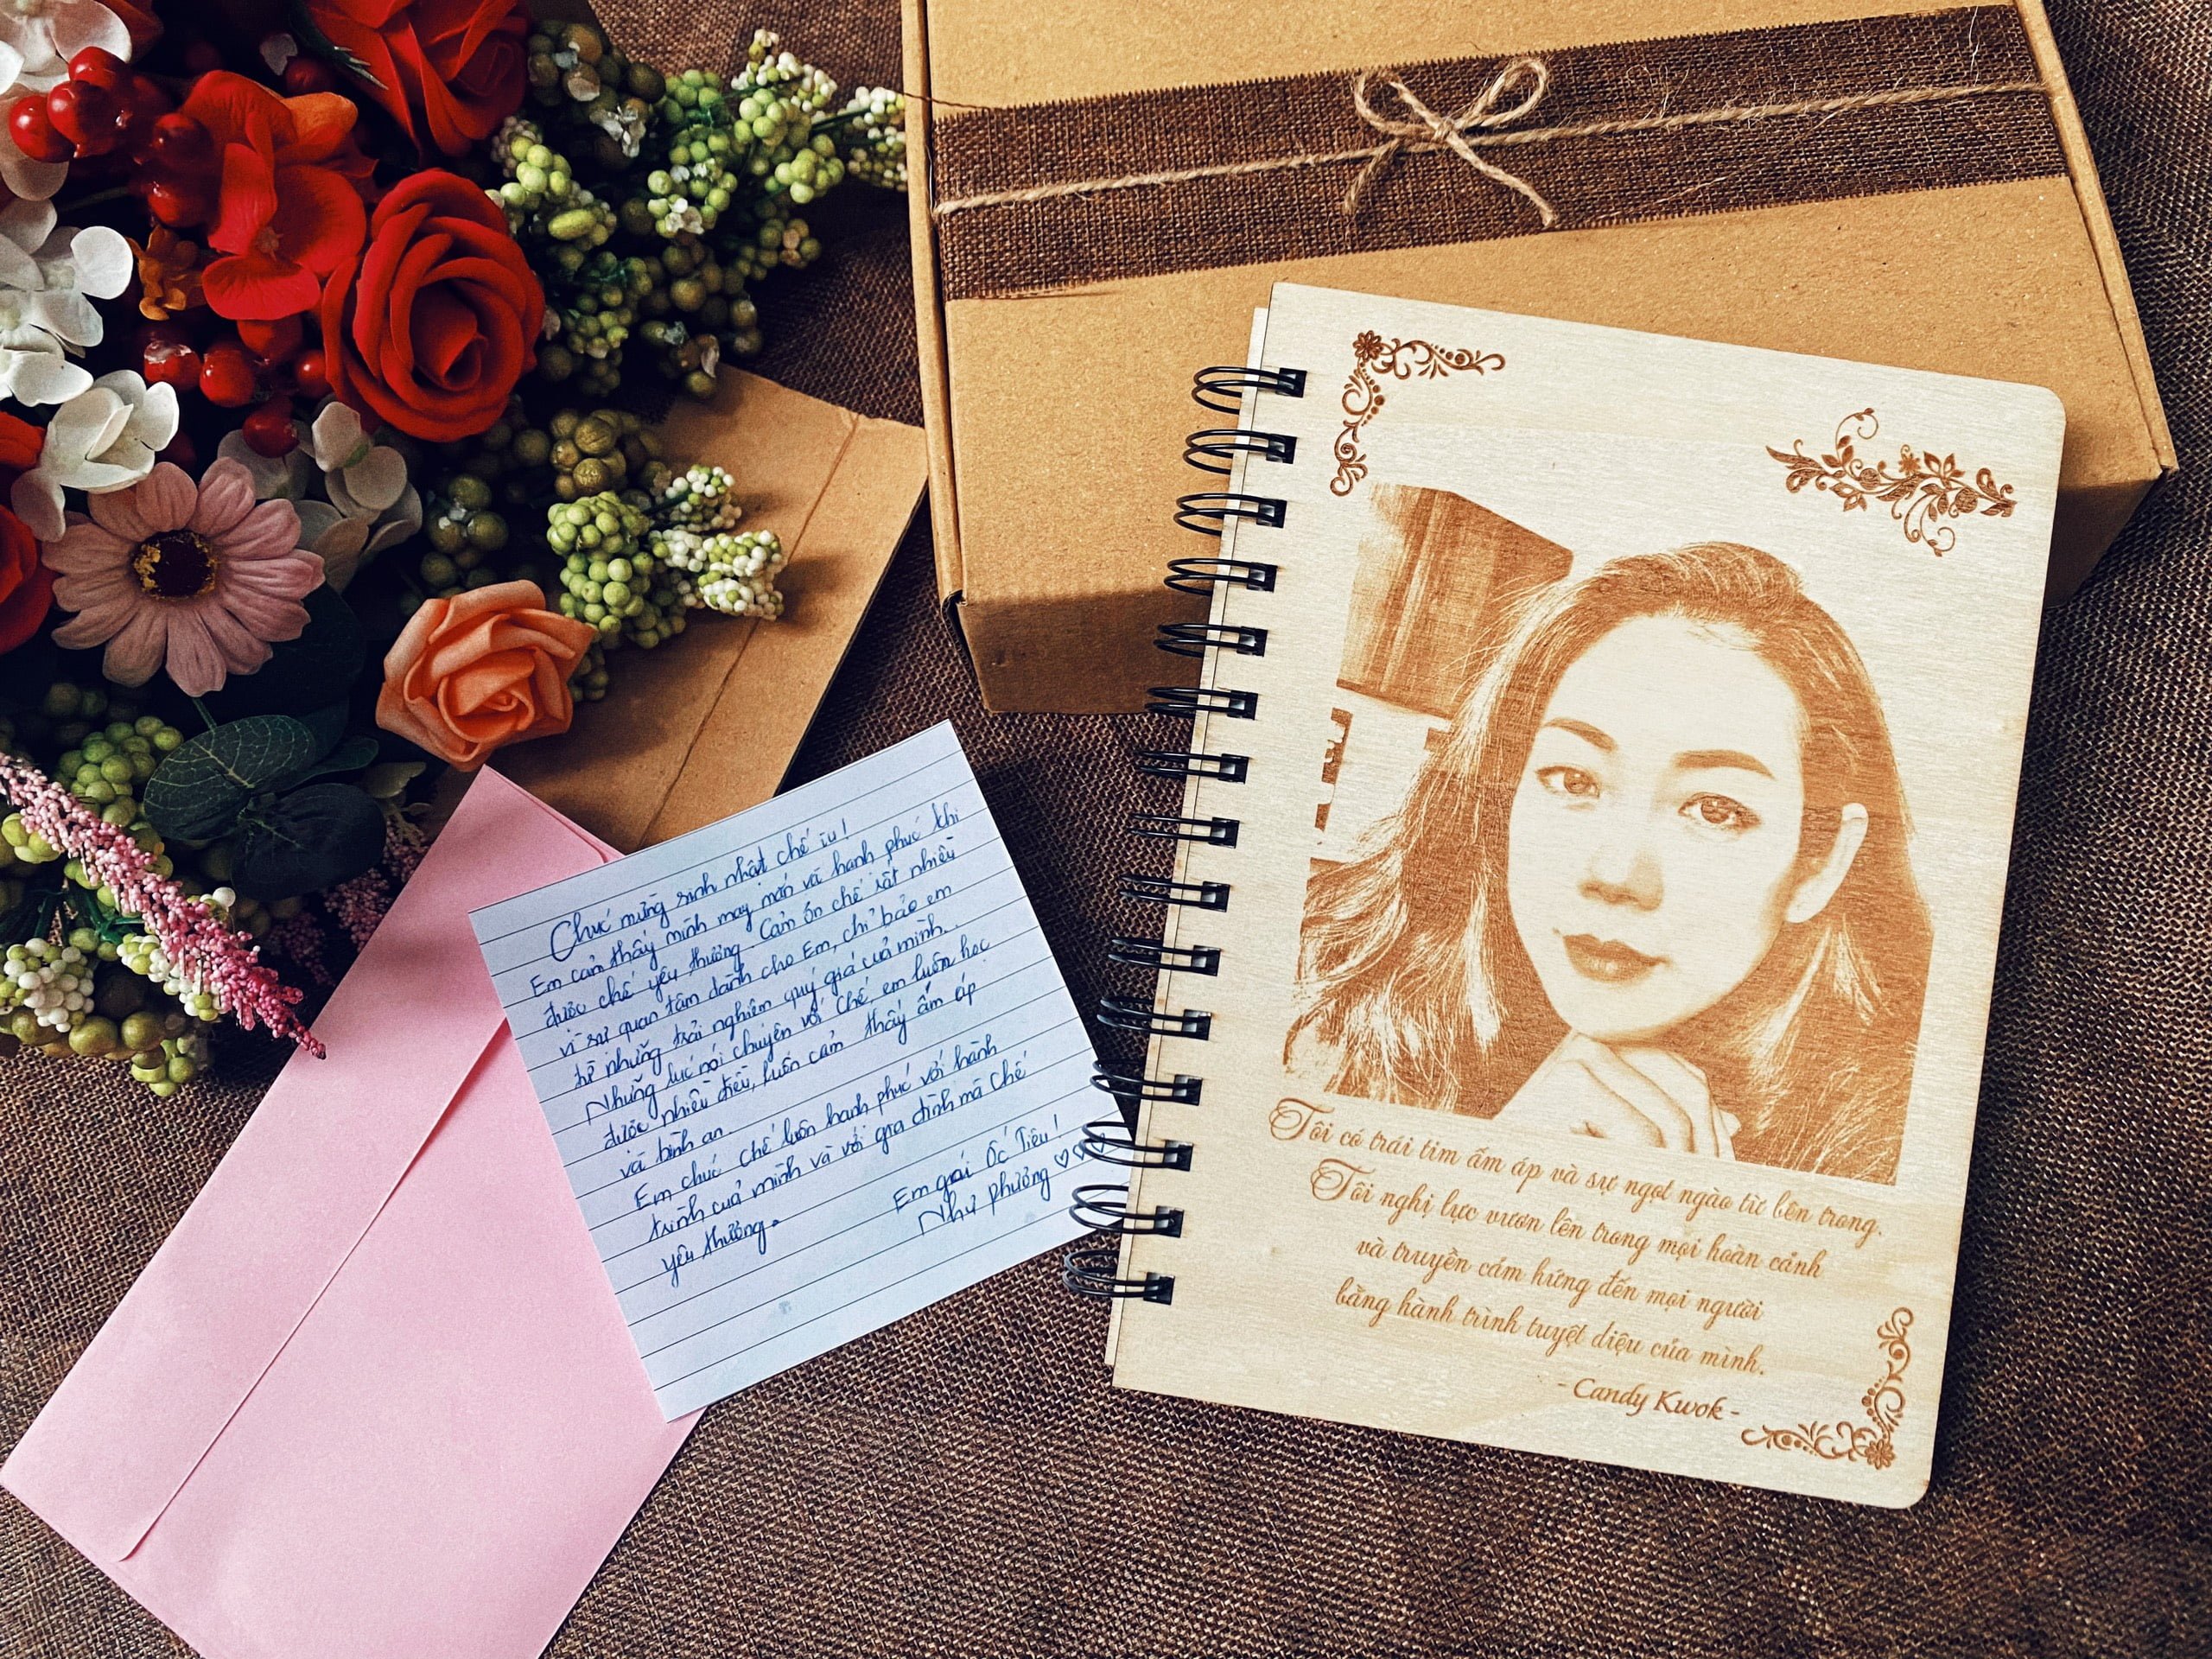 Chúc mừng sinh nhật chế iu!
Em cảm thấy mình may mắn và hạnh phúc khi
được chế yêu thương. Cảm ơn chế rất nhiều
vì sự quan tâm dành cho Em, chỉ bảo em
từ những trải nghiệm quý giá của mình.
Những lúc nói chuyện với Chế, em luôn học
được nhiều điều, luôn cảm thấy ấm áp
và bình an.
Em chúc Chế luôn hạnh phúc với hành
trình của mình và với gia đình mà Chế
yêu thương.
Em gái Ốc Tiêu!
Như Phương
Tôi có trái tim ấm áp và sự ngọt ngào từ bên trong.
Tôi nghị lực vươn lên trong mọi hoàn cảnh
và truyền cảm hứng đến mọi người
bằng hành trình tuyệt diệu của mình.
- Candy Kwok -